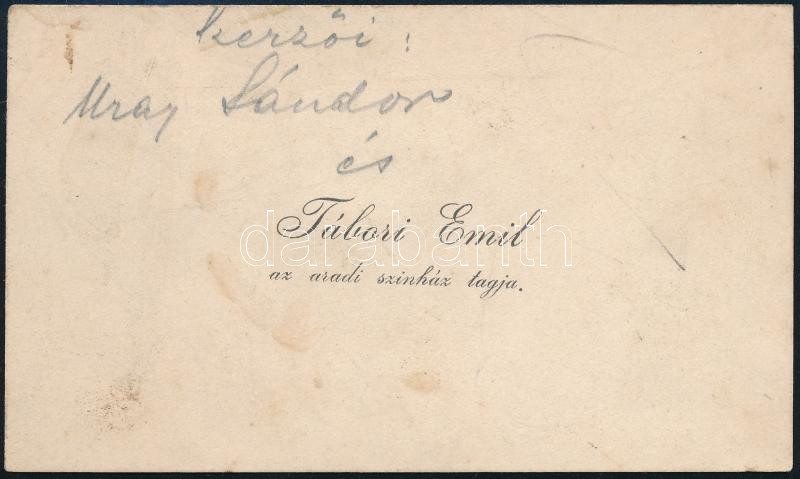 szerzői:
Uray Sándor
és
Tábori Emil
darabanth
az aradi szinház tagja.